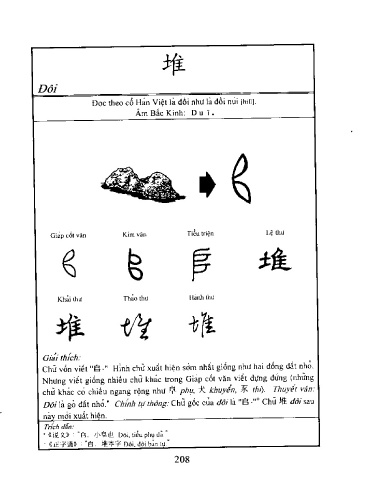 堆
Đôi
Đọc theo cổ Hán Việt là đồi như là đồi núi (hill).
Âm Bắc Kinh: Duī.
Giáp cốt văn Kim văn Tiểu triện Lệ thư
堆
Khải thư Thảo thư Hành thư
堆 堆 堆
Giải thích:
Chữ vốn viết "𠂤" Hình chữ xuất hiện sớm nhất giống như hai đống đất nhỏ.
Nhưng viết giống nhiều chữ khác trong Giáp cốt văn viết đựng đứng (những
chữ khác có chiều ngang rộng như 阜 phụ, 犬 khuyển, 豕 thỉ). Thuyết văn:
Đôi là gò đất nhỏ." Chính tự thông: Chữ gốc của đôi là "𠂤" Chữ 堆 đôi sau
này mới xuất hiện.
Trích dẫn:
《说文》: "𠂤, 小阜也 Đôi, tiểu phụ dã"
《正字通》: "𠂤, 堆本字 Đôi, đôi bản tự"
208